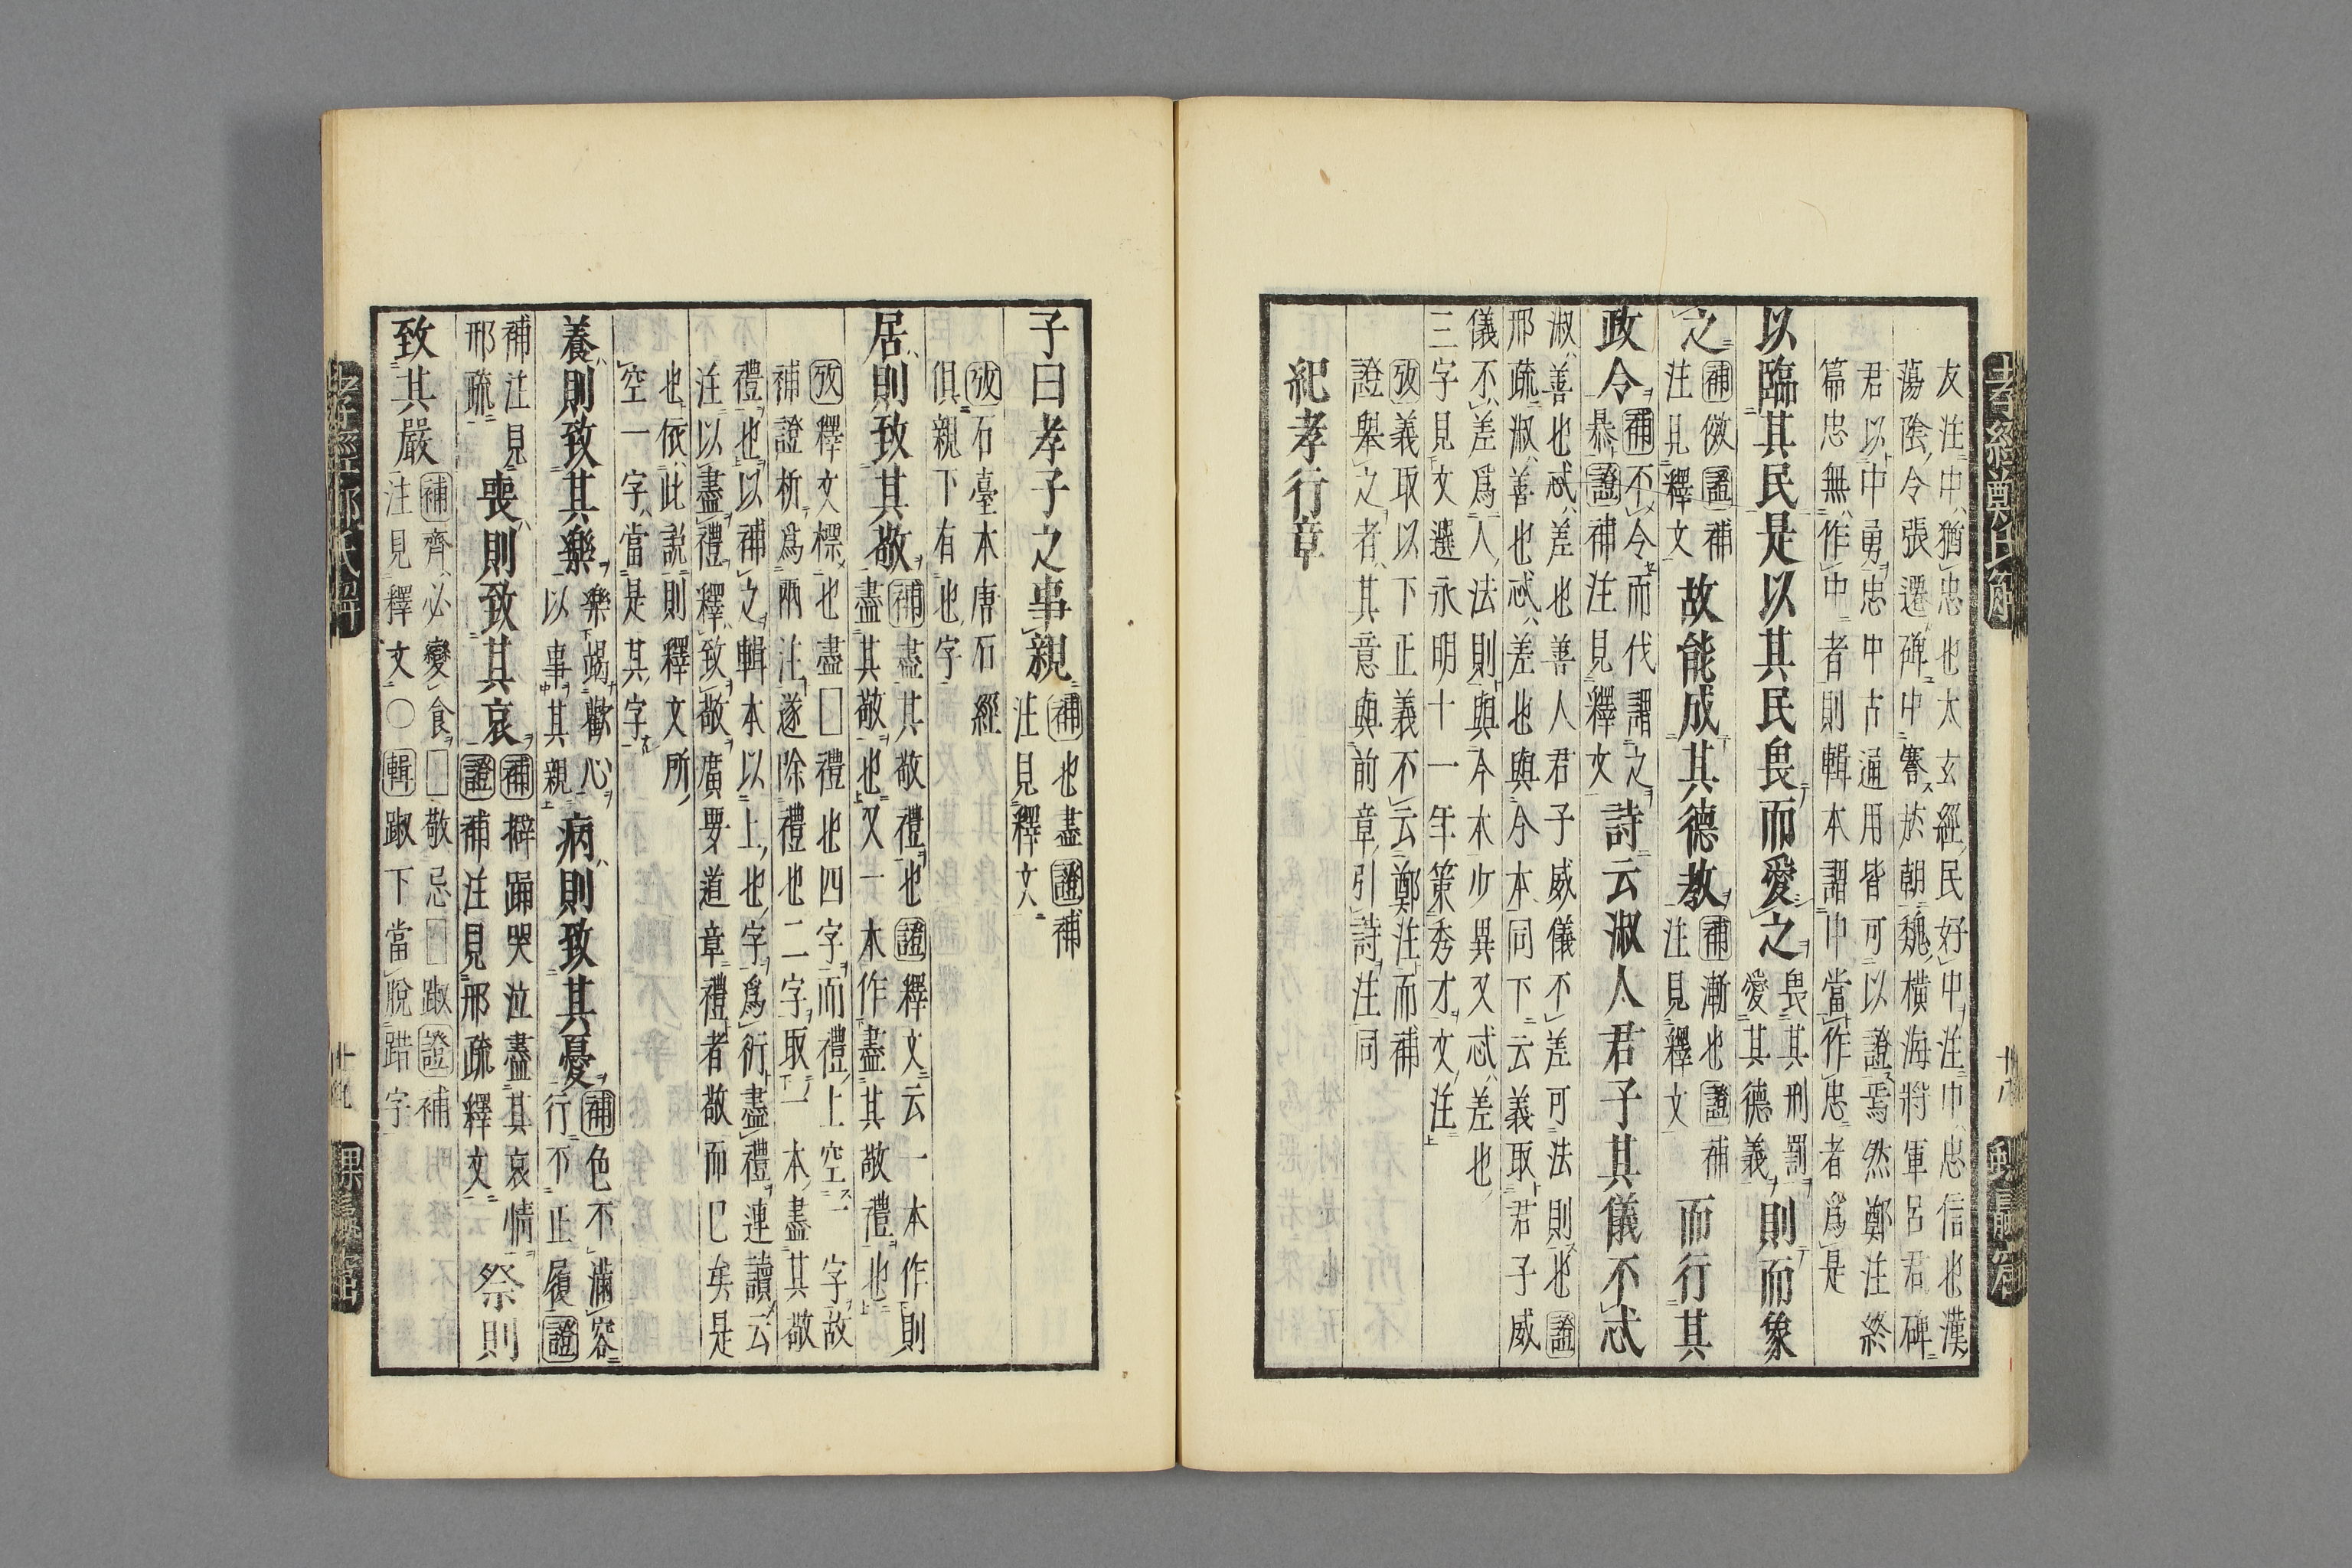 友注中猶忠也太玄經民好中注中忠信也漢
蕩陰令張遷碑中謇於朝魏橫海將軍呂君碑
君以中勇忠中古通用皆可以證焉然鄭注終
篇忠無作中者則輯本謂中當作忠者爲是
以臨其民是以其民畏而愛之畏其刑罰愛其德義則而象
之補傚證補注見釋文故能成其德敎補漸也證補注見釋文而行其
政令補不令而伐謂之暴證補注見釋文詩云淑人君子其儀不忒
淑善也忒差也善人君子威儀不差可法則也證
邢疏淑善也忒差也與今本同下云義取君子威
儀不差爲人法則與今本少異又忒差也
三字見文選永明十一年策秀才文注
攷義取以下正義不云鄭注而補
證舉之者其意與前章引詩注同
紀孝行章
子曰孝子之事親補也盡證補注見釋文
攷石臺本唐石經
俱親下有也字
居則致其敬補盡其敬禮也證釋文云一本作則盡其敬也又一本作盡其敬禮也
攷釋文標也盡□禮也四字而禮上空一字故
補證析爲兩注遂除禮也二字取一本盡其敬
禮也以補之輯本以上也字爲衍盡禮連讀云
注以盡禮釋致敬廣要道章禮者敬而已矣是
也依此說則釋文所
空一字當是其字
養則致其樂樂竭歡心以事其親病則致其憂補色不滿容行不正履證
補注見邢疏喪則致其哀補擗踊哭泣盡其哀情證補注見邢疏釋文祭則
致其嚴補齊必變食□敬忌□踧證補注見釋文○輯踧下當脫踖字
孝經鄭氏解
十八
十九